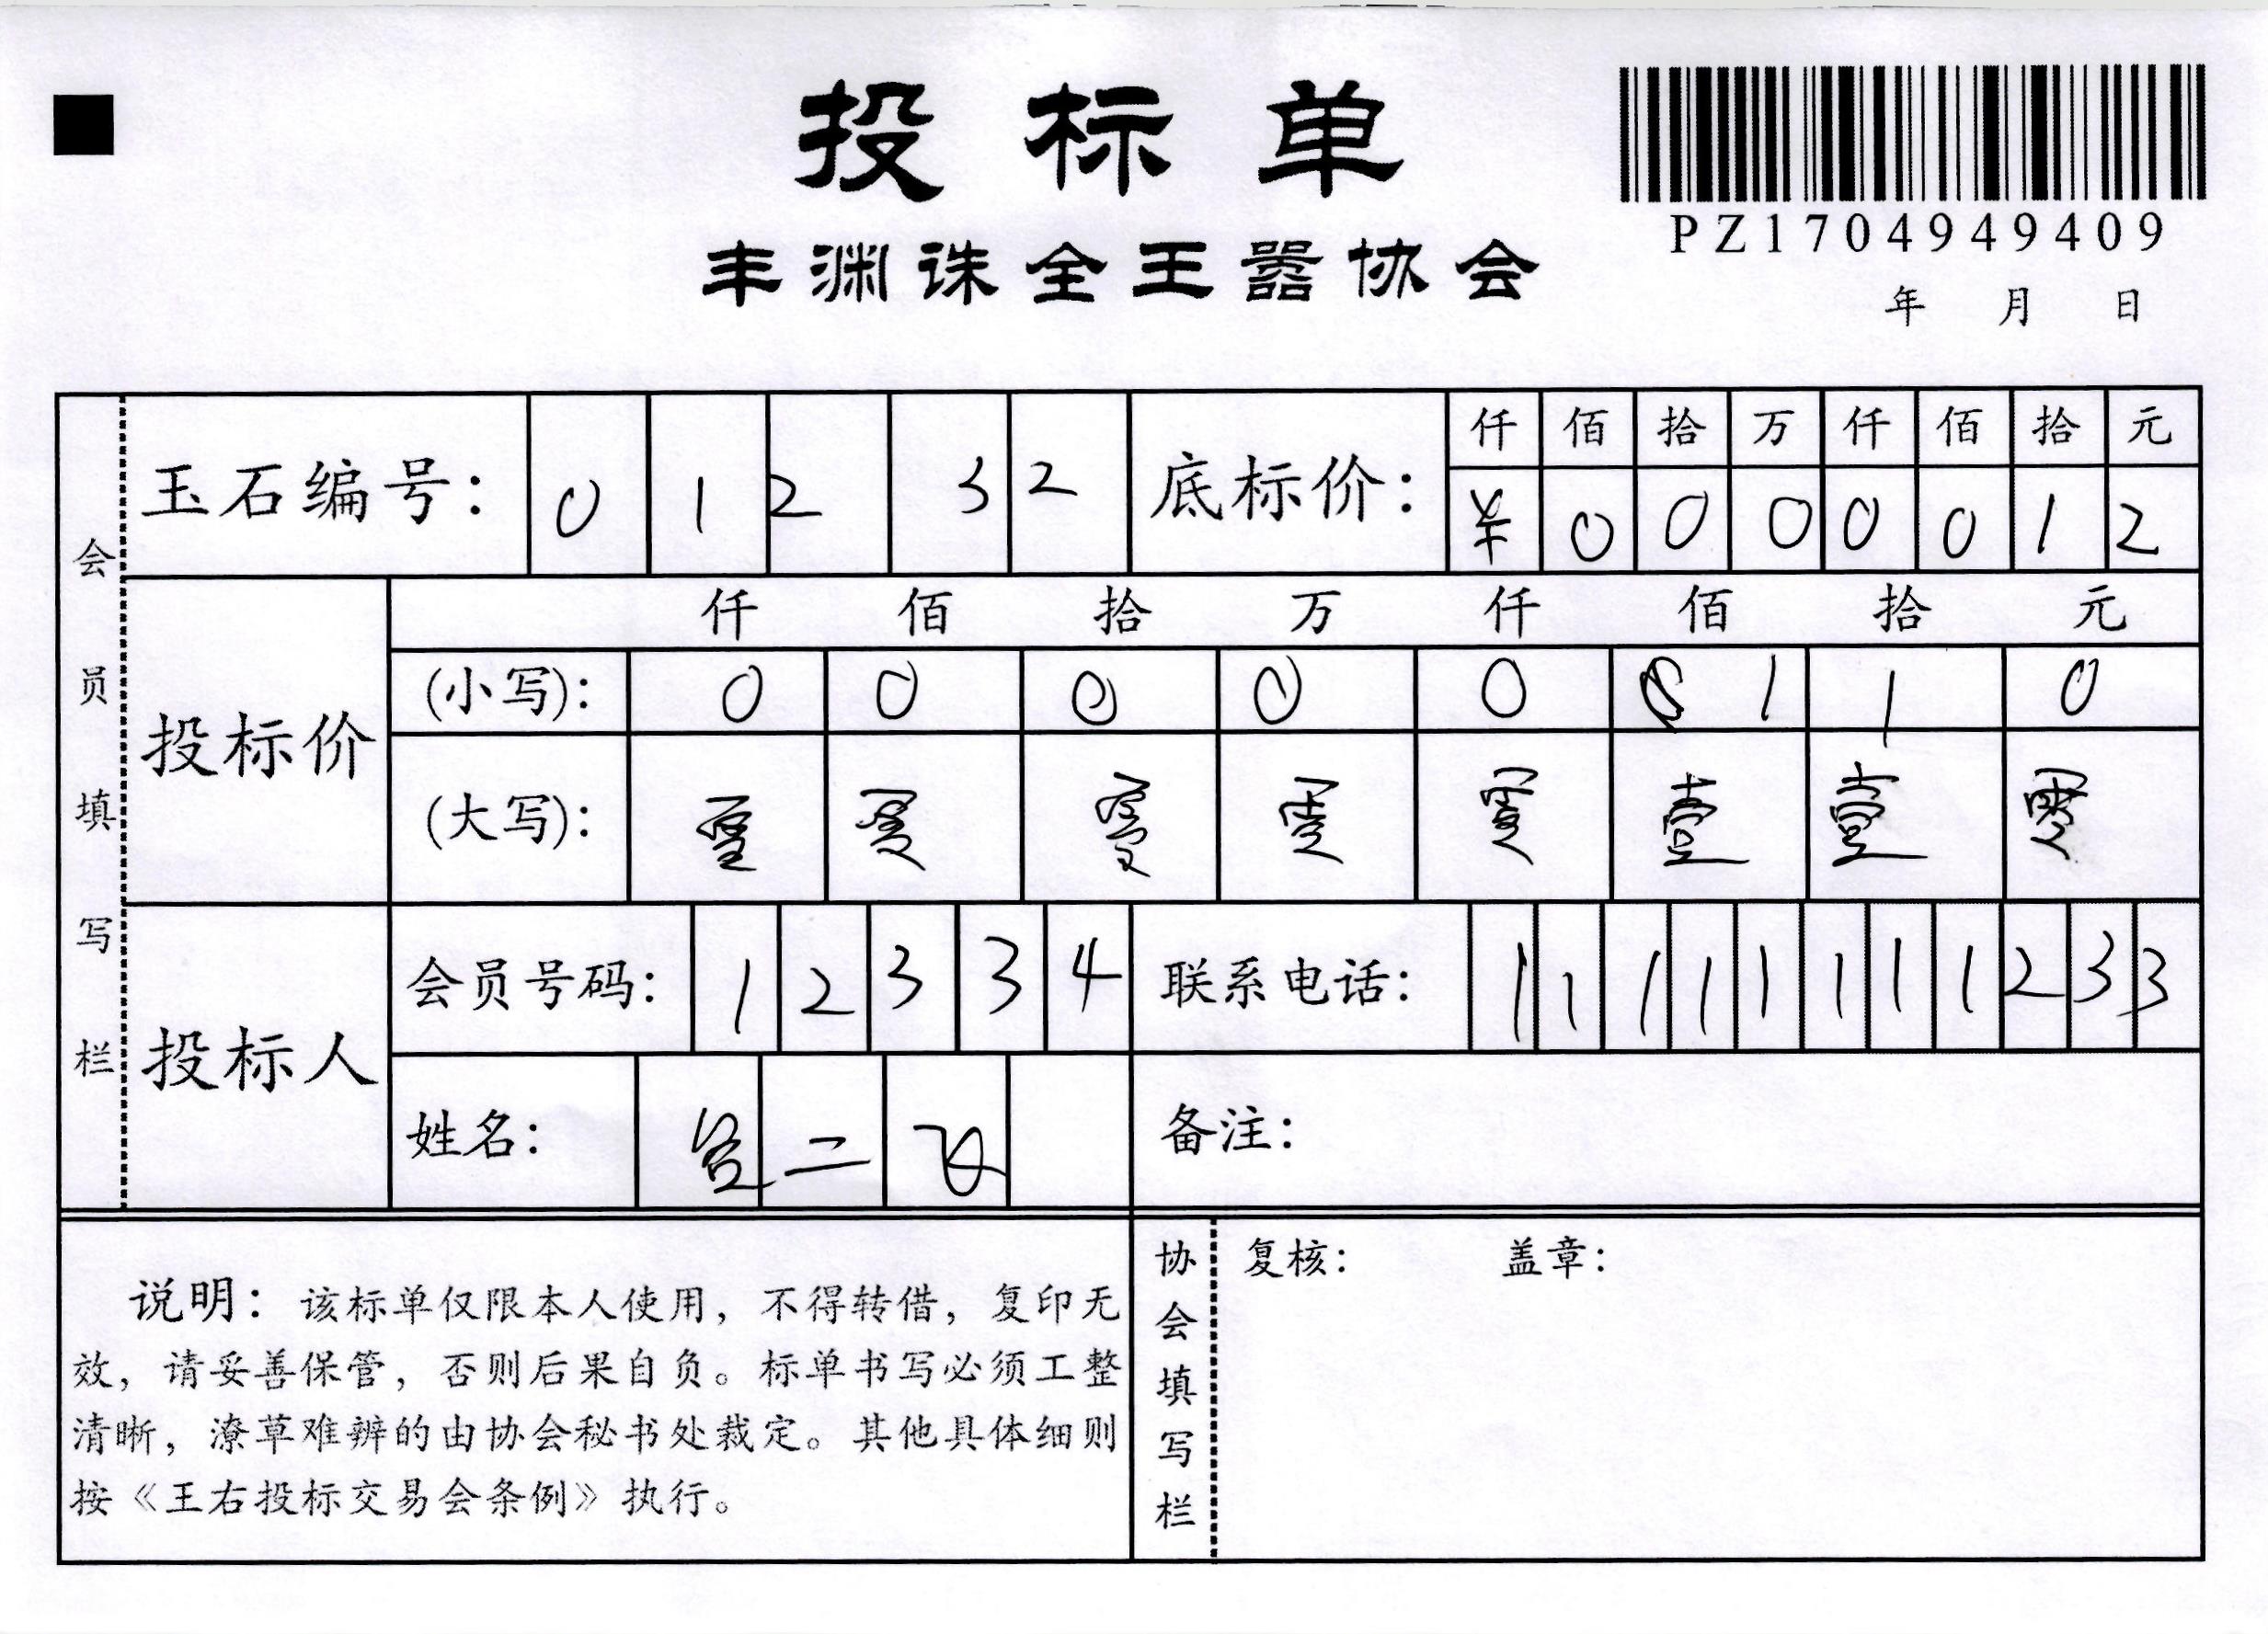 投标单
PZ1704949409
丰渊诛全王嚣协会
年 月 日
会员填写栏
玉石编号: 0 1 2 3 2
底标价: 仟 佰 拾 万 仟 佰 拾 元
¥ 0 0 0 0 0 1 2
投标价
仟 佰 拾 万 仟 佰 拾 元
(小写): 0 0 0 0 0 1 1 0
(大写): 零 零 零 零 零 壹 壹 零
投标人
会员号码: 1 2 3 3 4
联系电话: 1 1 1 1 1 1 1 1 2 3 3
姓名: 二
备注:
说明: 该标单仅限本人使用, 不得转借, 复印无
效, 请妥善保管, 否则后果自负。标单书写必须工整
清晰, 潦草难辨的由协会秘书处裁定。其他具体细则
按《王右投标交易会条例》执行。
协会填写栏
复核: 盖章: